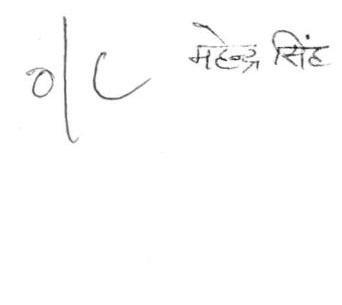 o/c महेन्द्र सिंह